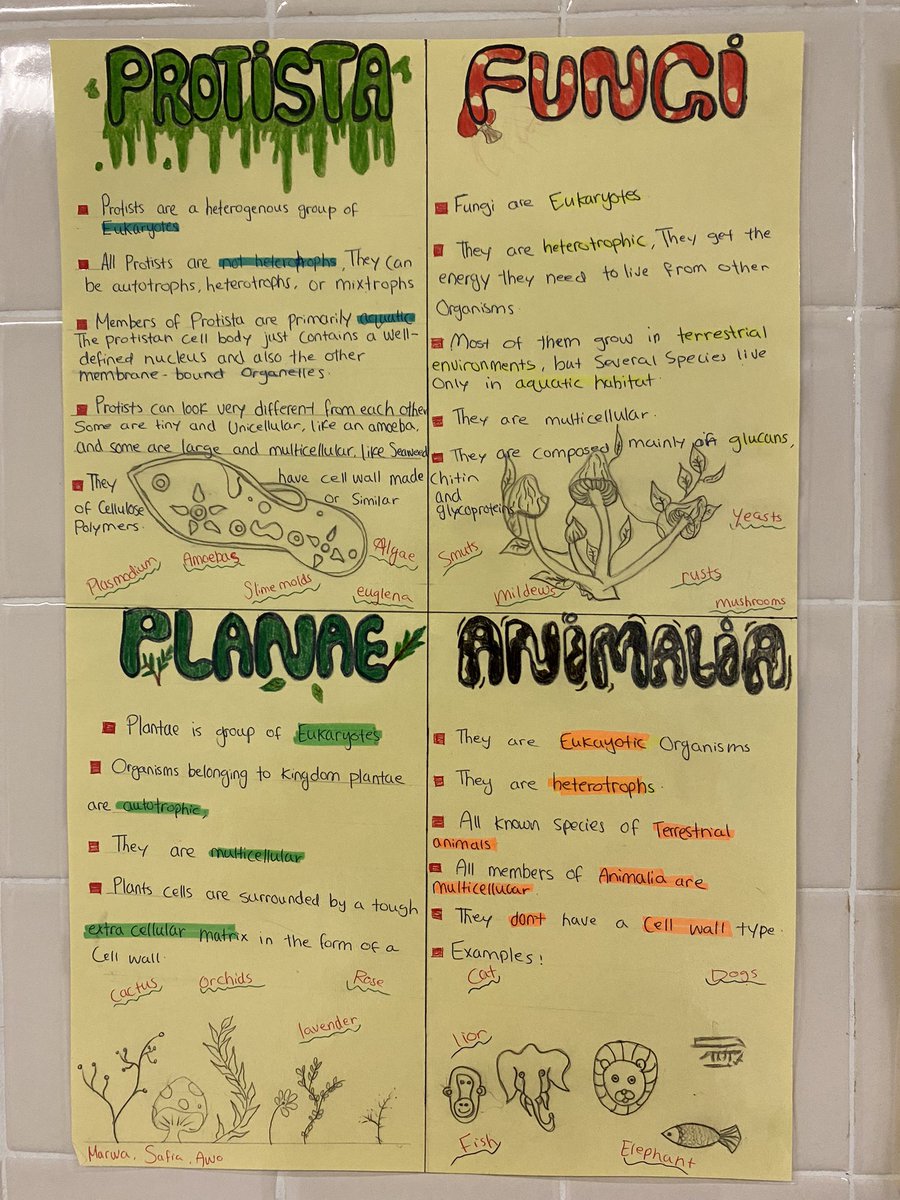 PROTISTA
Protists are a heterogenous group of
Eukaryotes
All Protists are not heterotrophs, They can
be autotrophs, heterotrophs, or mixtrophs
Members of Protista are primarily aquatic
The protistan cell body just contains a well-
defined nucleus and also the other
membrane-bound Organelles.
Protists can look very different from each other
Some are tiny and Unicellular, like an amoeba,
and some are large and multicellular, like Seaweed
They have cell wall made
of Cellulose or Similar
Polymers.
Plasmodium
Amoebas
Slime molds
Algae
euglena
FUNGI
Fungi are Eukaryotes
They are heterotrophic, They get the
energy they need to live from other
Organisms.
Most of them grow in terrestrial
environments, but Several Species live
Only in aquatic habitat.
They are multicellular.
They are composed mainly of glucans,
chitin
and
glycoproteins
Smuts
Mildews
Yeasts
rusts
mushrooms
PLANAE
Plantae is group of Eukaryotes
Organisms belonging to Kingdom plantae
are autotrophic,
They are multicellular
Plants cells are surrounded by a tough
extra cellular matrix in the form of a
Cell wall.
Cactus
Orchids
Rose
lavender
Marwa, Safia, Awo
ANIMALIA
They are Eukayotic Organisms
They are heterotrophs.
All known species of Terrestrial
animals
All members of Animalia are
multicellular
They dont have a Cell wall type.
Examples!
Cat
Dogs
lior
Fish
Elephant